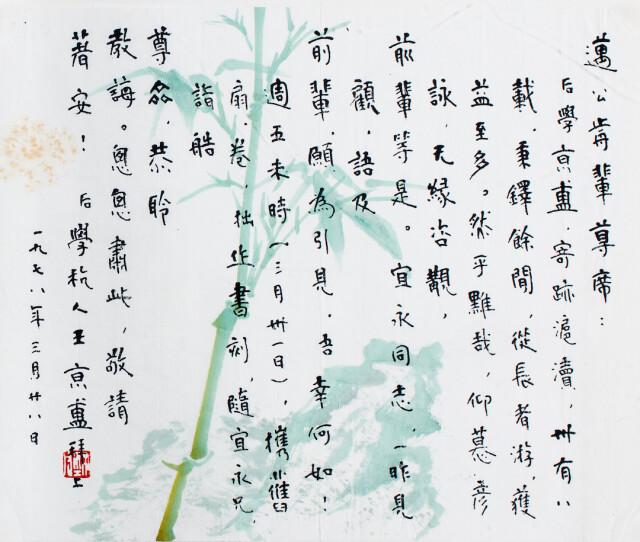 邁公前輩尊席：
后學京盦，寄跡滬瀆，卅有八
載，秉鐸餘閒，從長者游，獲
益至多。然乎難哉，仰慕彥
詠，无緣咨觀，
前輩等是。宜永同志，一昨見
顧，語及
前輩，願為引見，吾幸何如！
週五未時（三月卅一日），攜
扇、卷，拙作書刻，隨宜永兄，
詣皓
尊翁，恭聆
教誨。恖恖肅此，敬請
著安！ 后學杭人王京盦拜上
一九七八年三月廿八日